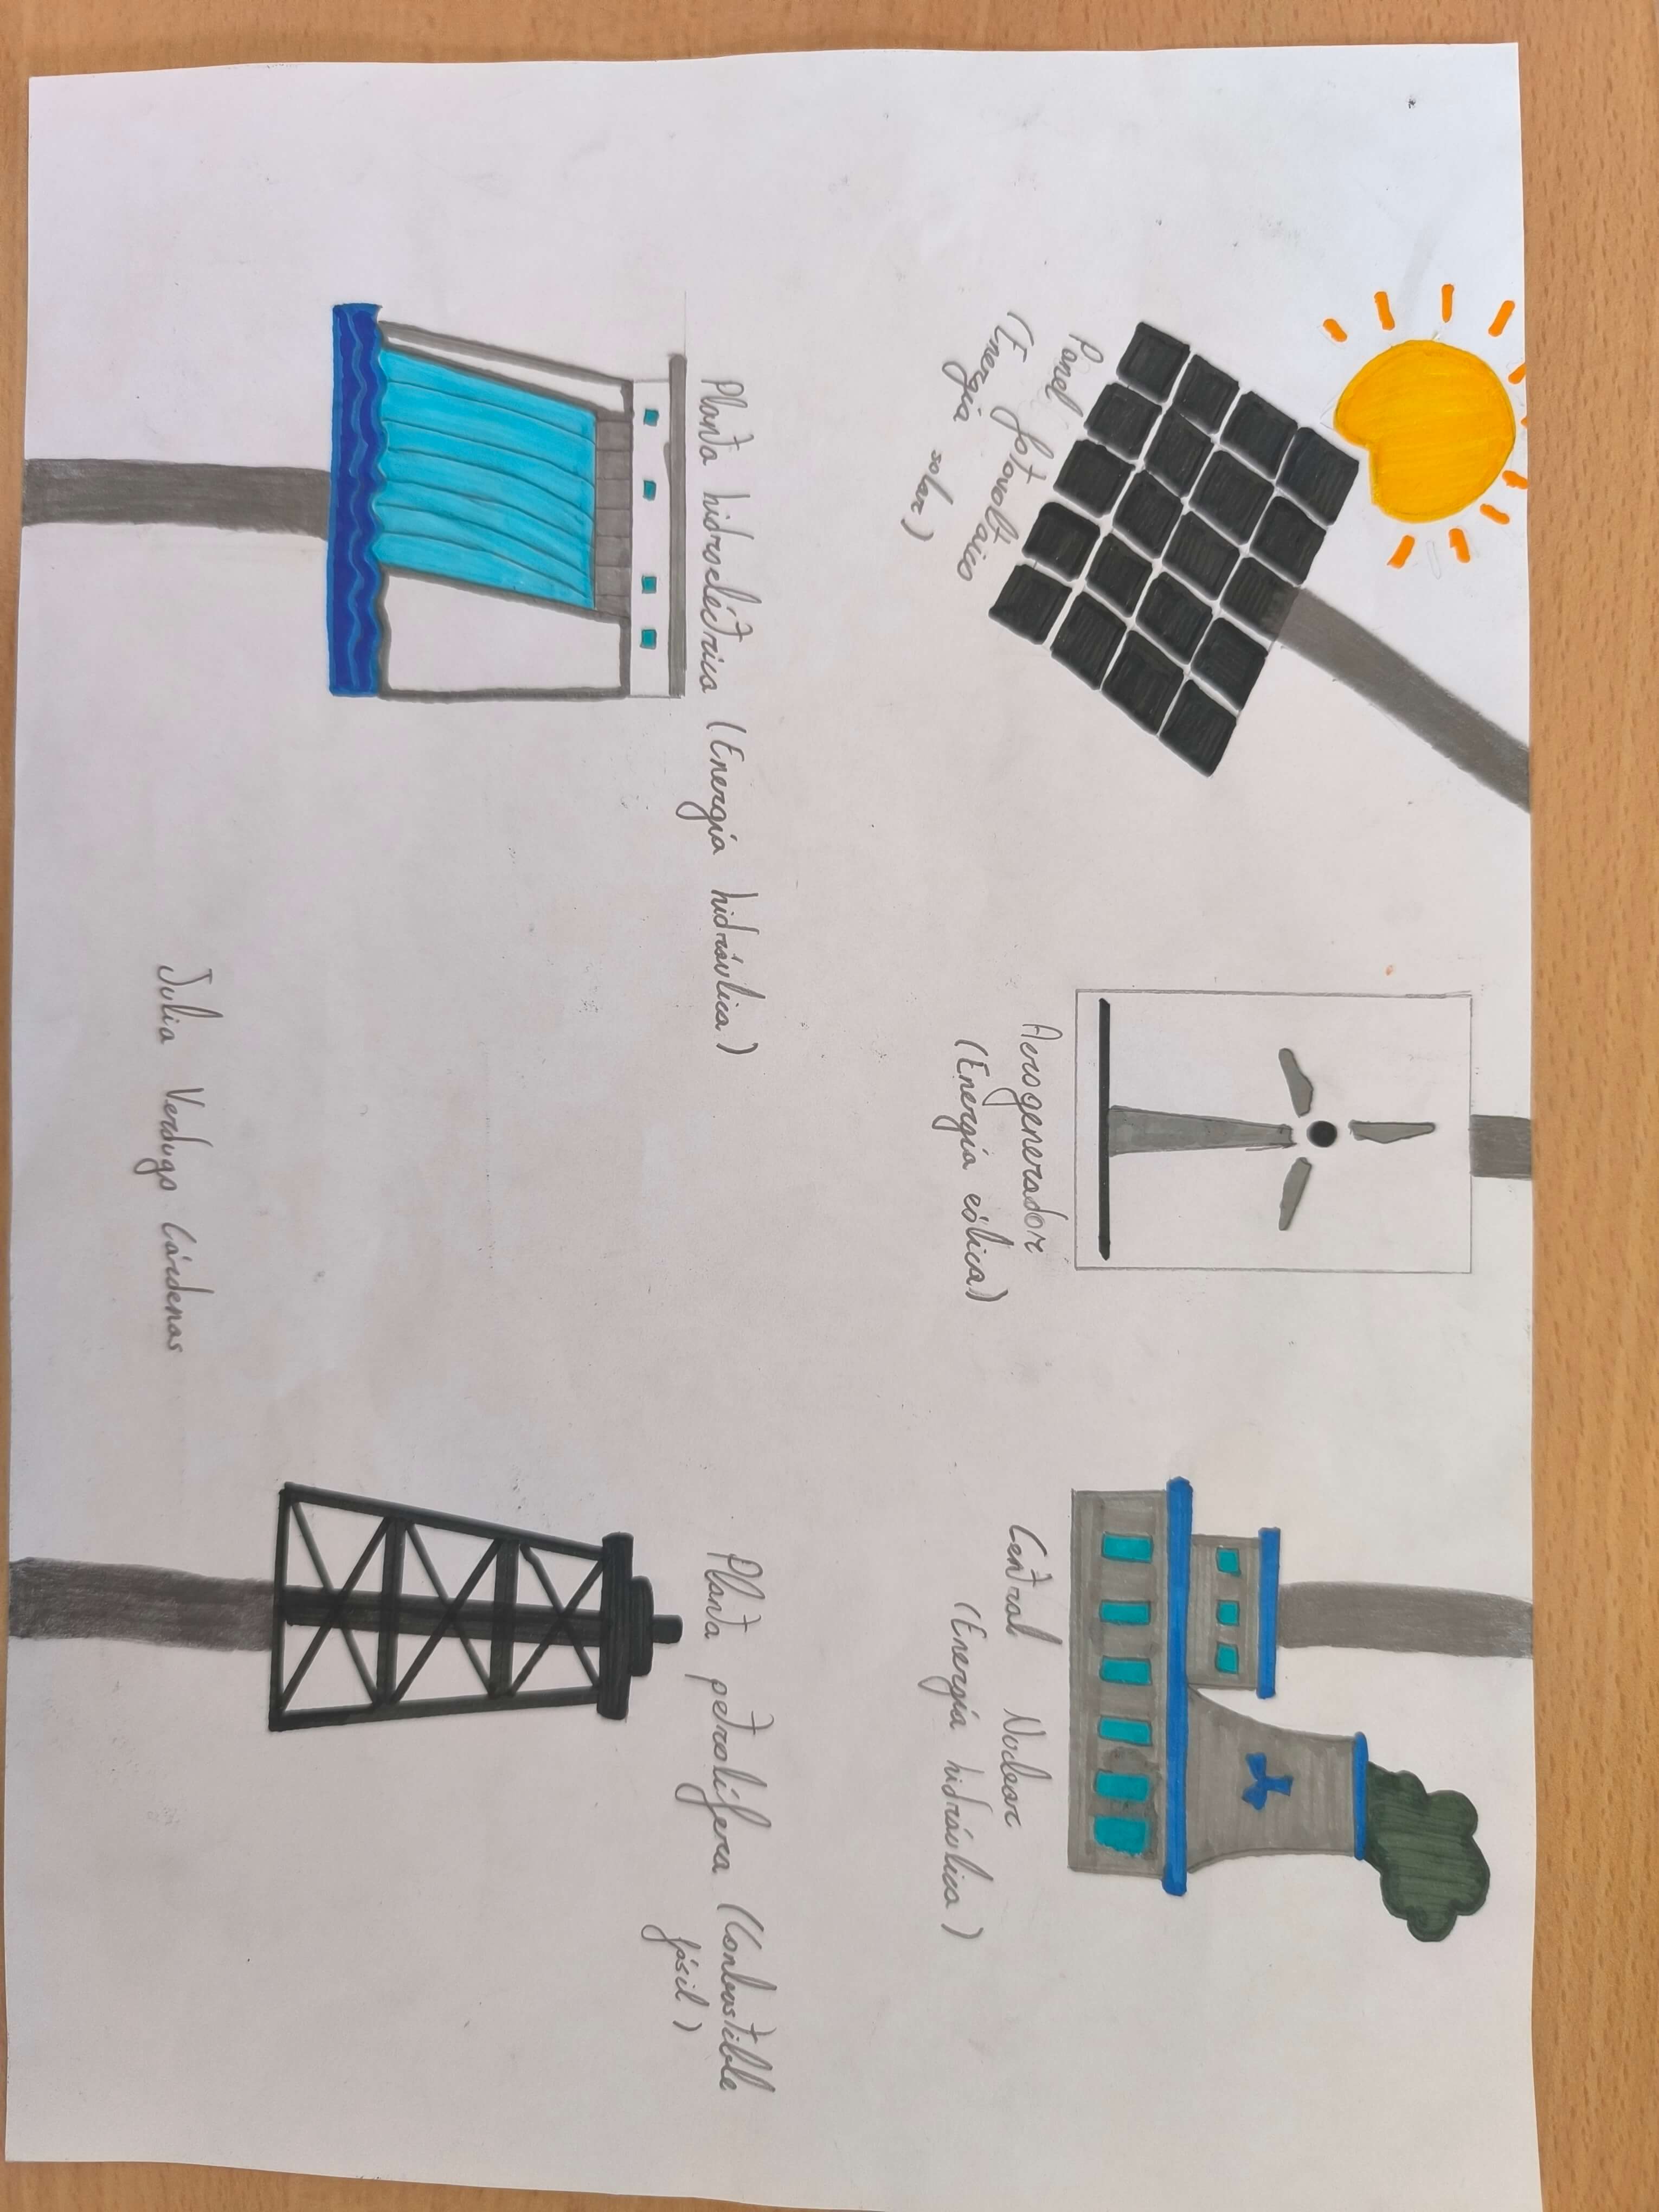 Panel fotovoltaico
(Energía solar)
Aerogenerador
(Energía eólica)
Central Nuclear
(Energía hidráulica)
Planta hidroeléctrica (Energía hidráulica)
Planta petrolífera (Conbustible
fósil)
Julia Verdugo Cárdenas